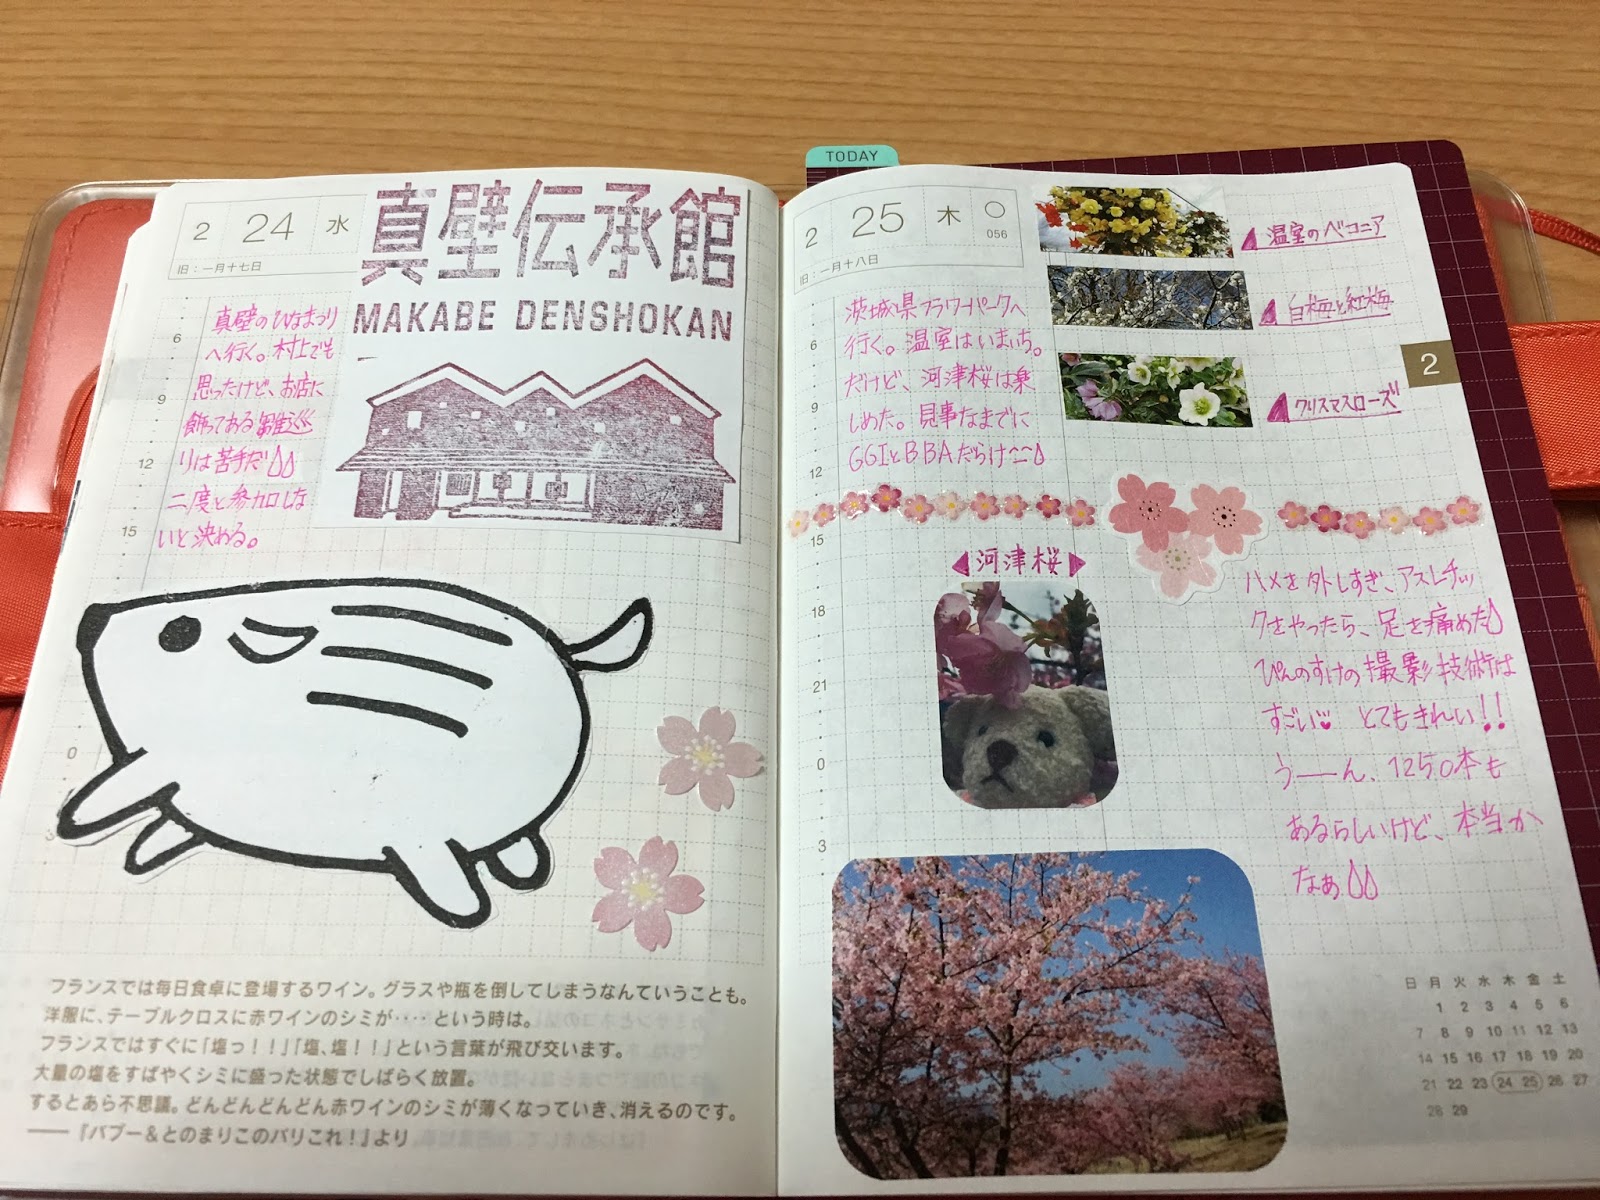 2 24 水
旧：一月十七日
真壁伝承館
MAKABE DENSHOKAN
真壁のひなまつり
へ行く。村上でも
思ったけど、お店に
飾ってある雛巡
りは苦手だ
二度と参加しな
いと決める。
6
9
12
15
0
3
フランスでは毎日食卓に登場するワイン。グラスや瓶を倒してしまうなんていうことも。
洋服に、テーブルクロスに赤ワインのシミが‥‥という時は。
フランスではすぐに「塩っ！！」「塩、塩！！」という言葉が飛び交います。
大量の塩をすばやくシミに盛った状態でしばらく放置。
するとあら不思議。どんどんどんどん赤ワインのシミが薄くなっていき、消えるのです。
──『バブー＆とのまりこのパリこれ！』より
TODAY
2 25 木 ○
056
旧：一月十八日
茨城県フラワーパークへ
行く。温室はいまいち。
だけど、河津桜は楽
しめた。見事なまでに
GGIとBBAだらけ
温室のベコニア
白梅と紅梅
クリスマスローズ
2
6
9
12
15
18
21
0
3
河津桜
ハメを外しすぎ、アスレチッ
クをやったら、足を痛めた
ぴんのすけの撮影技術は
すごい♥ とてもきれい！！
うーーん、1250本も
あるらしいけど、本当か
なぁ
日 月 火 水 木 金 土
1 2 3 4 5 6
7 8 9 10 11 12 13
14 15 16 17 18 19 20
21 22 23 24 25 26 27
28 29